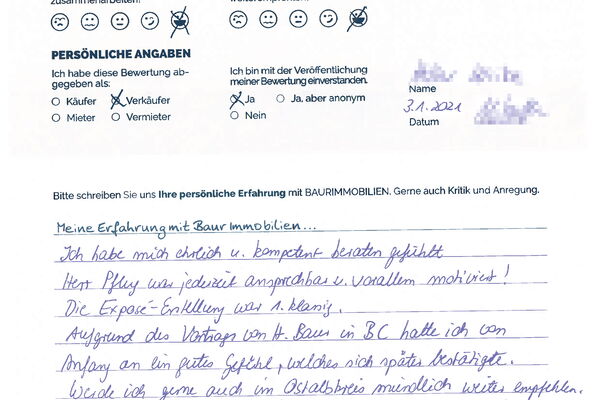 zusammenarbeiten?
weiterempfehlen?
PERSÖNLICHE ANGABEN
Ich habe diese Bewertung ab-
gegeben als:
Käufer Verkäufer
Mieter Vermieter
Ich bin mit der Veröffentlichung
meiner Bewertung einverstanden.
Ja Ja, aber anonym
Nein
Name
3.1.2021
Datum
Bitte schreiben Sie uns Ihre persönliche Erfahrung mit BAURIMMOBILIEN. Gerne auch Kritik und Anregung.
Meine Erfahrung mit Baur Immobilien...
Ich habe mich ehrlich u. kompetent beraten gefühlt
Herr Pflug war jederzeit ansprechbar u. vorallem motiviert!
Die Exposé-Erstellung war 1. klassig.
Aufgrund des Vortrags von H. Baur in BC hatte ich von
Anfang an ein gutes Gefühl, welches sich später bestätigte.
Werde ich gerne auch im Ostalbkreis mündlich weiter empfehlen.